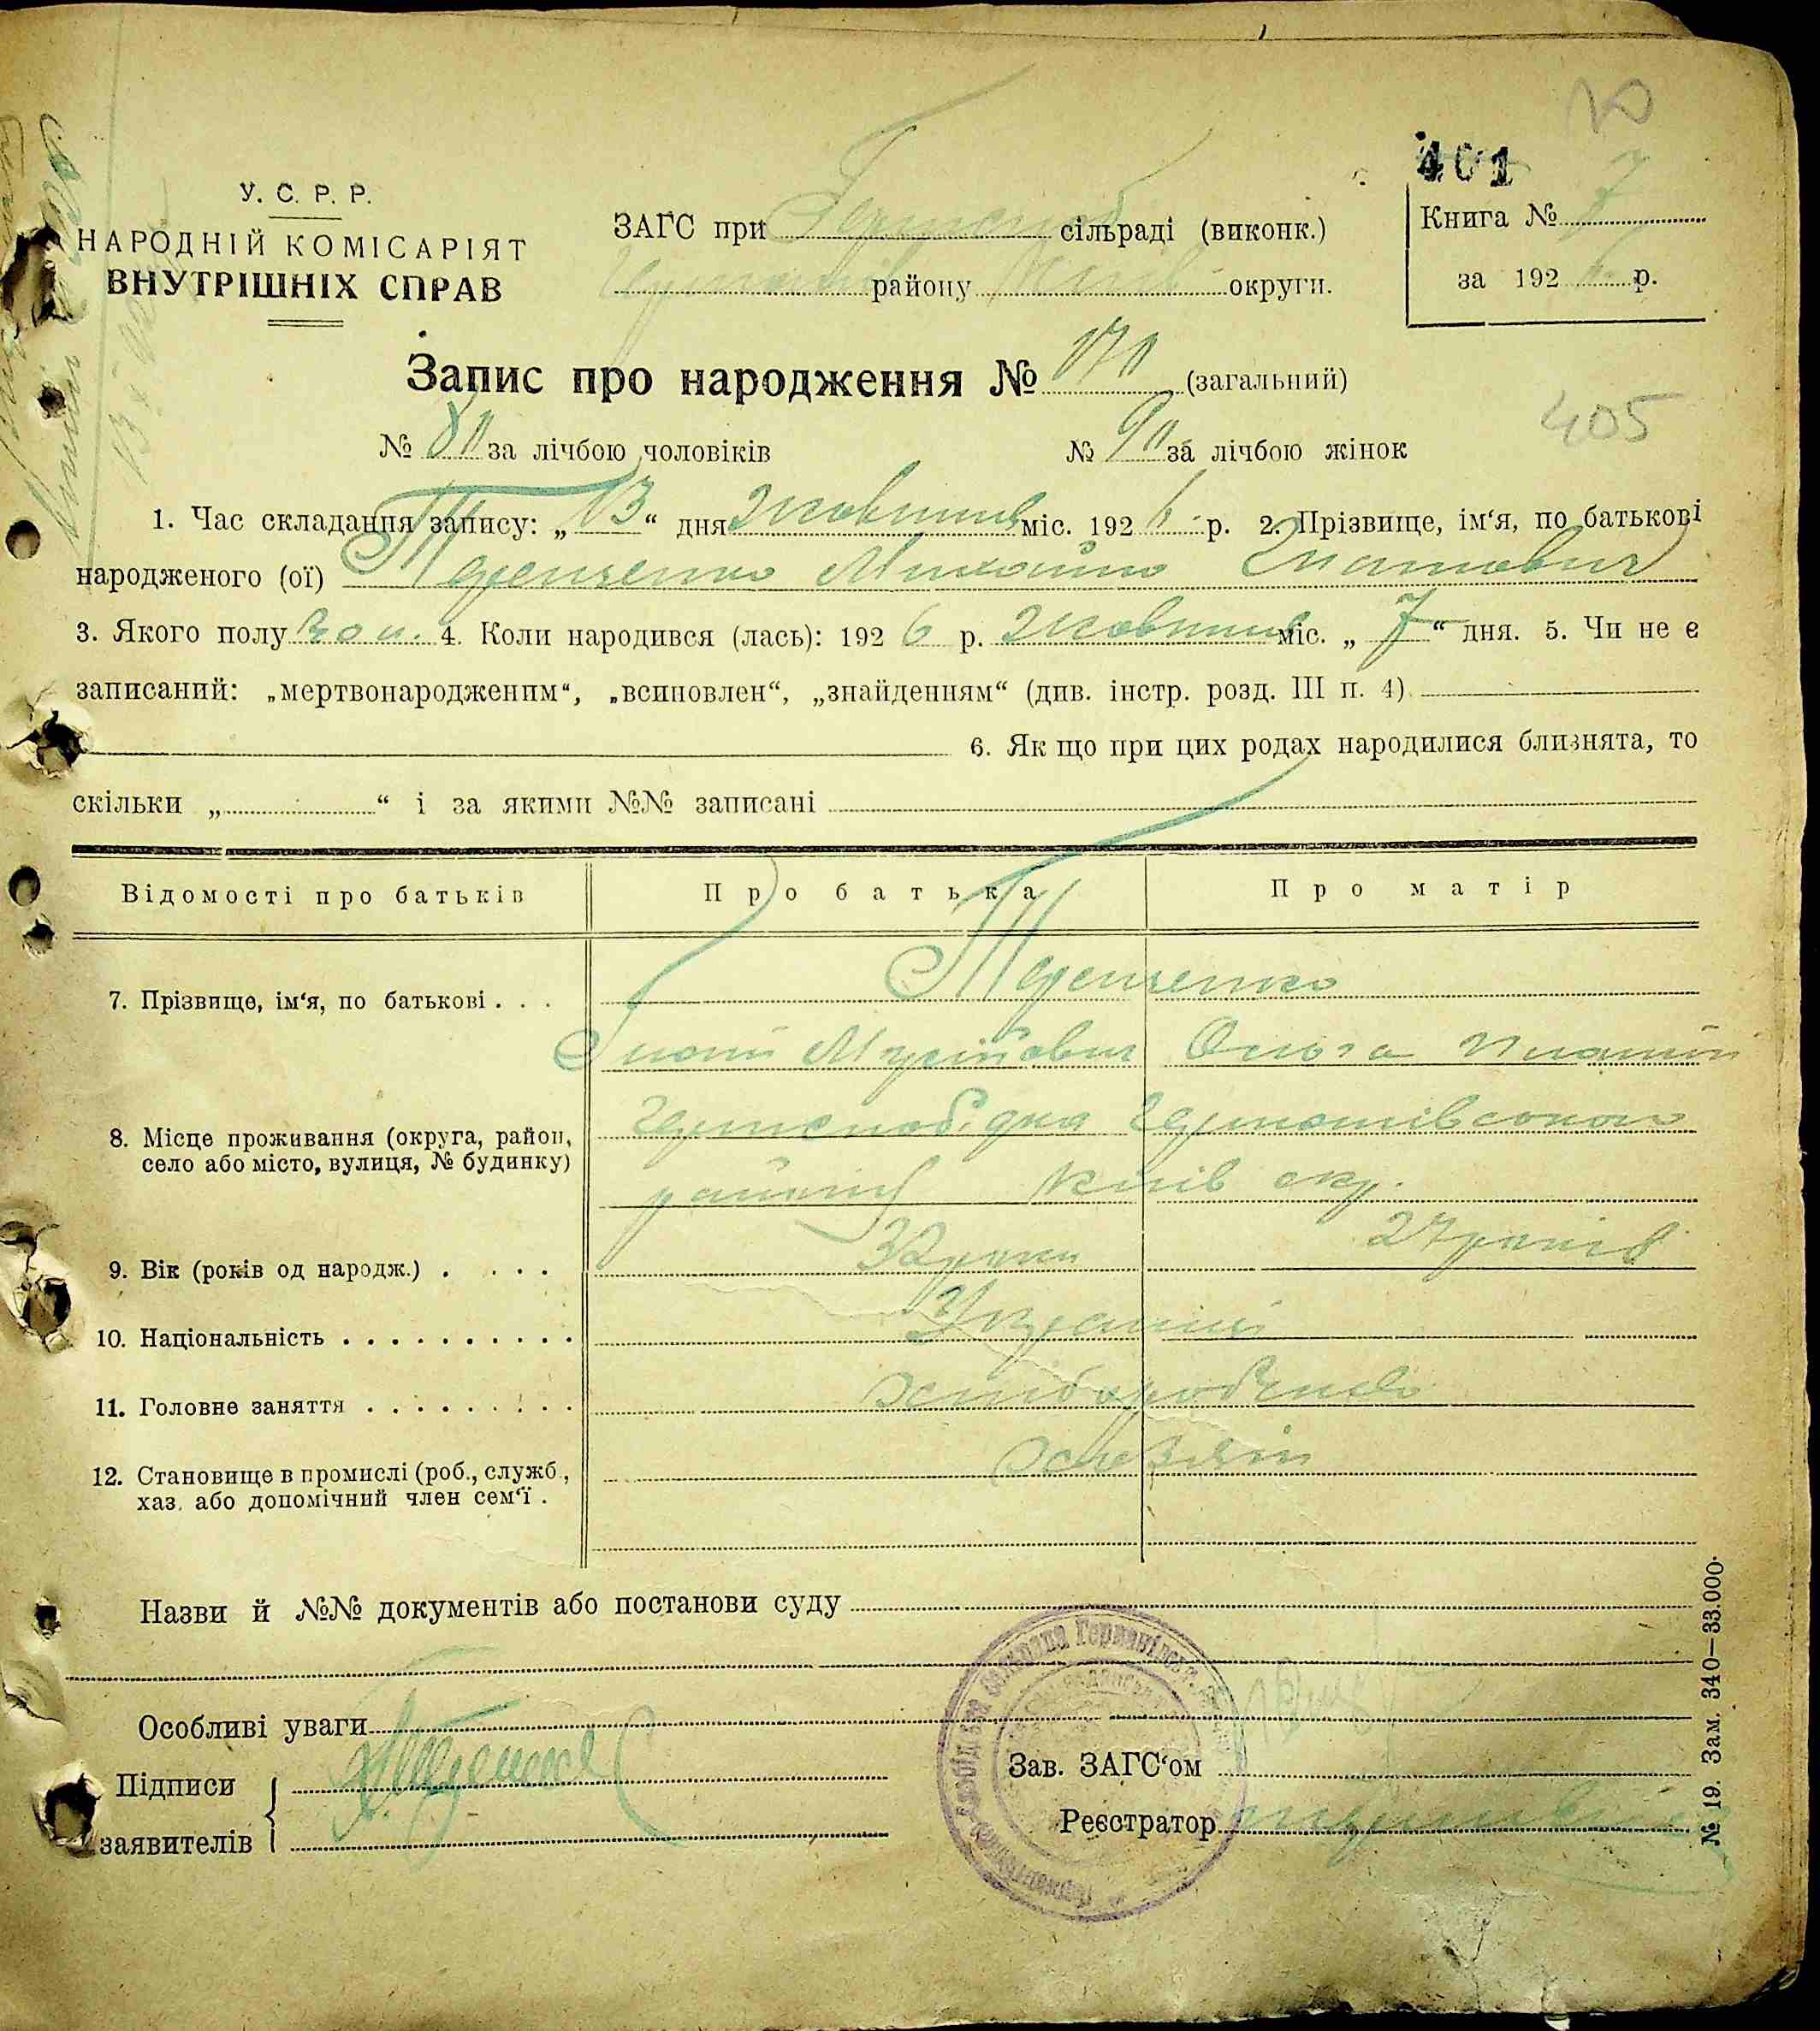 401
У. С. Р. Р.
НАРОДНІЙ КОМІСАРІЯТ
ВНУТРІШНІХ СПРАВ
ЗАГС при сільраді (виконк.)
району Київ округи.
Книга № 7
за 1926 р.
Запис про народження № 170 (загальний)
405
№ 80 за лічбою чоловіків № 90 за лічбою жінок
1. Час складання запису: „13“ дня Жовтня міс. 1926 р. 2. Прізвище, ім'я, по батькові
народженого (ої) Терещенко Михайло
3. Якого полу чол. 4. Коли народився (лась): 1926 р. Жовтня міс. „7“ дня. 5. Чи не є
записаний: „мертвонародженим“, „всиновлен“, „знайденням“ (див. інстр. розд. III п. 4)
6. Як що при цих родах народилися близнята, то
скільки „ “ і за якими №№ записані
Відомості про батьків Про батька Про матір
7. Прізвище, ім'я, по батькові . . . Терещенко
Ольга
8. Місце проживання (округа, район,
село або місто, вулиця, № будинку)
району Київ окр.
9. Вік (років од народж.) . . . . 32 роки 27 років
10. Національність . . . . . . . . . . Українці
11. Головне заняття . . . . . . . . . Хліборобство
12. Становище в промислі (роб., служб.,
хаз. або допомічний член сем'ї .
Назви й №№ документів або постанови суду
Особливі уваги
Підписи
заявителів
Зав. ЗАГС'ом
Реєстратор
№ 19. Зам. 340—33.000.